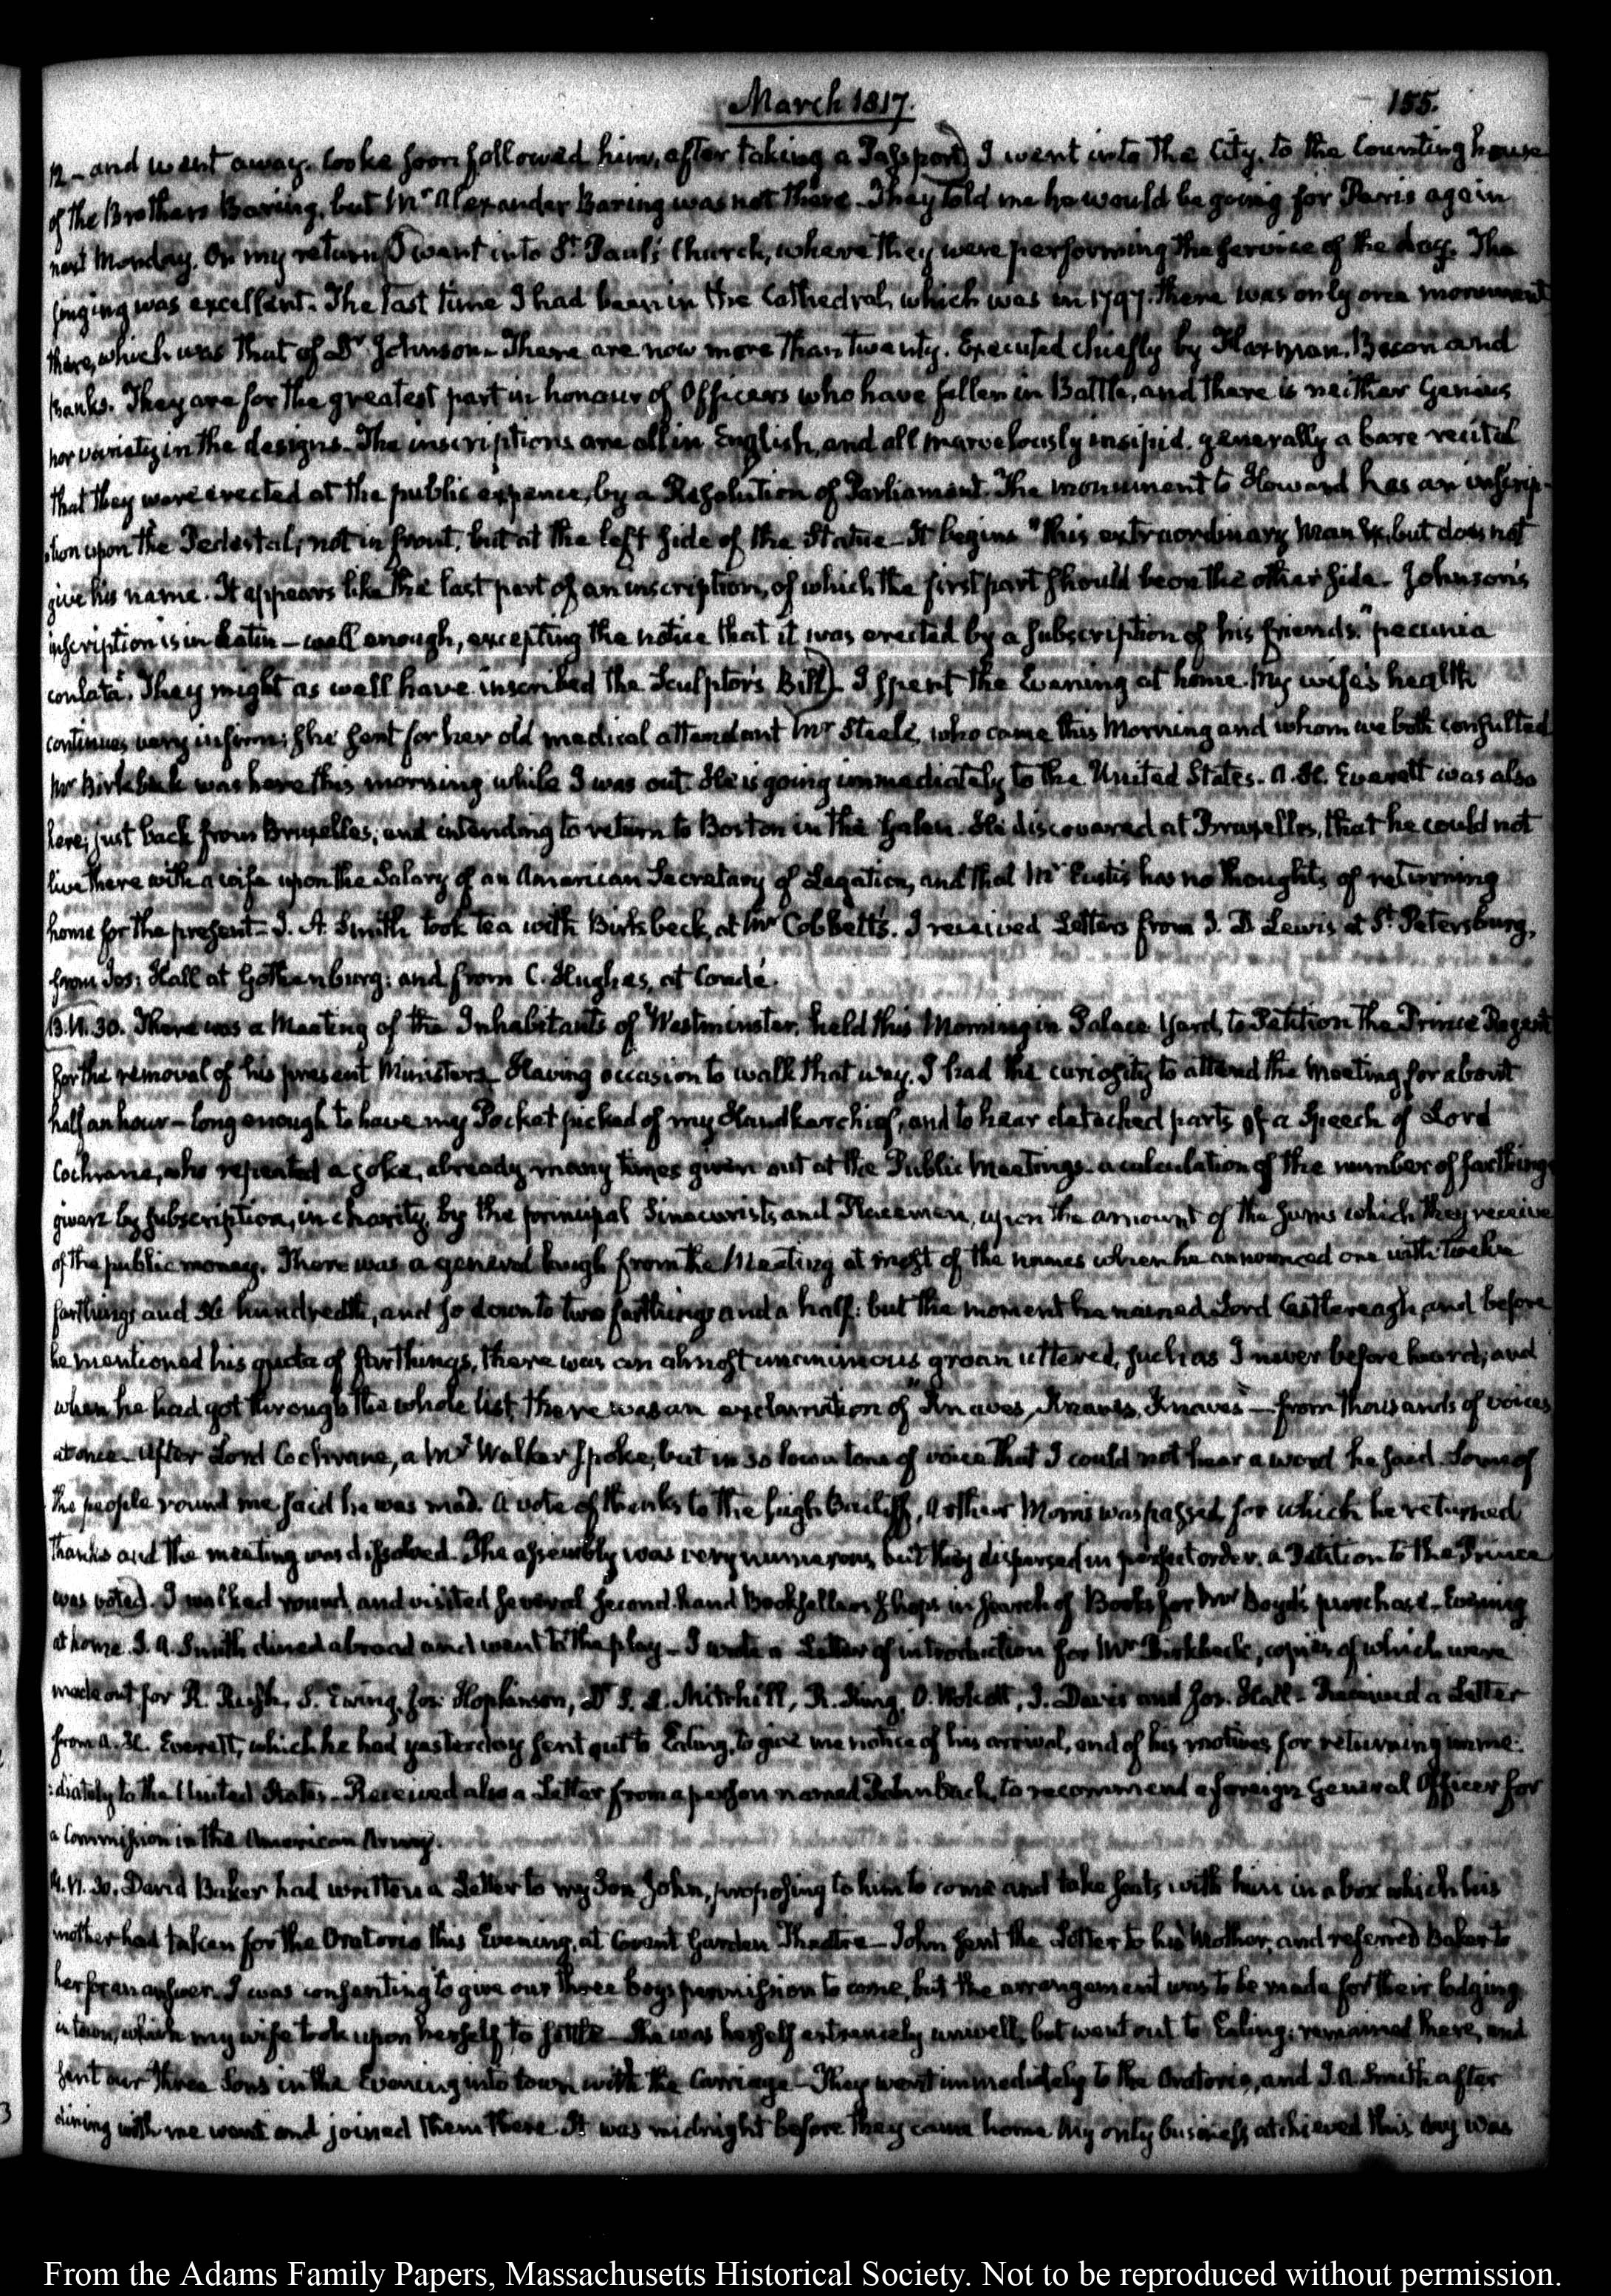 March 1817.
155.
12 – and went away. Cooke soon followed him, after taking a Passport) I went into the City, to the Counting house
of the Brothers Baring, but Mr. Alexander Baring was not there – They told me he would be going for Paris again
next Monday. On my return (I went into St. Paul's Church, where they were performing the service of the day. The
singing was excellent. The last time I had been in the Cathedral, which was in 1797. there was only one monument
there, which was that of Dr. Johnson – There are now more than twenty. Executed chiefly by Flaxman, Bacon and
Banks. They are for the greatest part in honour of Officers who have fallen in Battle, and there is neither Genius
nor variety in the designs – The inscriptions are all in English, and all marvelously insipid. generally a bare recital
that they were erected at the public expence, by a Resolution of Parliament. The monument to Howard has an inscrip-
-tion upon the Pedestal, not in front, but at the left side of the Statue – It begins "this extraordinary Man &c, but does not
give his name. It appears like the last part of an inscription, of which the first part should be on the other side – Johnson's
inscription is in Latin – well enough, excepting the notice that it was erected by a subscription of his friends. "pecunia
conlata". They might as well have inscribed the Sculptor's Bill) – I spent the Evening at home. My wife's health
continues very infirm; she sent for her old medical attendant Mr Steele, who came this Morning and whom we both consulted
Mr Birkbeck was here this morning while I was out. He is going immediately to the United States. A. H. Everett was also
here; just back from Bruxelles; and intending to return to Boston in the Galen. He discovered at Bruxelles, that he could not
live there with a wife upon the Salary of an American Secretary of Legation, and that Mr Eustis has no thoughts of returning
home for the present – J. A. Smith took tea with Birkbeck, at Mr Cobbett's. I received Letters from J. D. Lewis at St. Petersburg,
from Jos: Hall at Gothenburg: and from C. Hughes, at Condé.
13. VI. 30. There was a Meeting of the Inhabitants of Westminster, held this Morning in Palace Yard, to Petition the Prince Regent
for the removal of his present Ministers – Having occasion to walk that way, I had the curiosity to attend the Meeting for about
half an hour – long enough to have my Pocket picked of my Handkerchief, and to hear detached parts of a Speech of Lord
Cochrane, who repeated a joke, already many times given out at the Public Meetings – a calculation of the number of farthings
given by subscription, in charity, by the principal Sinecurists and Placemen, upon the amount of the sums which they receive
of the public money. There was a general laugh from the Meeting at most of the names when he announced one with twelve
farthings and hundredth, and so down to two farthings and a half: but the moment he named Lord Castlereagh, and before
he mentioned his quota of farthings, there was an almost unanimous groan uttered, such as I never before heard; and
when he had got through the whole list there was an exclamation of "Knaves, Knaves, Knaves" – from thousands of voices
at once – After Lord Cochrane, a Mr Walker spoke, but in so low a tone of voice that I could not hear a word he said. Some of
the people round me said he was mad. A vote of thanks to the high Bailiff, Arthur Morris was passed, for which he returned
thanks and the meeting was dissolved. The assembly was very numerous, but they dispersed in perfect order. a Petition to the Prince
was voted). I walked round and visited several second-hand Booksellers shops in search of Books for Mr Boyd's purchase – Evening
at home. J. A. Smith dined abroad and went to the play – I wrote a Letter of introduction for Mr Birkbeck, copies of which were
made out for R. Rush, S. Ewing, Jos: Hopkinson, Dr S. L. Mitchill, R. King, O. Wolcott, J. Davis and Jos. Hall – Received a Letter
from A. H. Everett, which he had yesterday sent out to Ealing, to give me notice of his arrival, and of his motives for returning imme:
:diately to the United States – Received also a Letter from a person named to recommend a foreign General Officer for
a Commission in the American Army.
14. VI. 30. David Baker had written a Letter to my Son John, proposing to him to come and take seats with him in a box which his
mother had taken for the Oratorio this Evening, at Covent Garden Theatre – John sent the Letter to his Mother, and referred Baker to
her for an answer. I was consenting to give our three boys permission to come, but the arrangement was to be made for their lodging
in town, which my wife took upon herself to settle – She was herself extremely unwell, but went out to Ealing; remained there, and
sent our three Sons in the Evening into town with the Carriage – They went immediately to the Oratorio, and J. A. Smith after
dining with me went and joined them there. It was midnight before they came home. My only business atchieved this day was
From the Adams Family Papers, Massachusetts Historical Society. Not to be reproduced without permission.